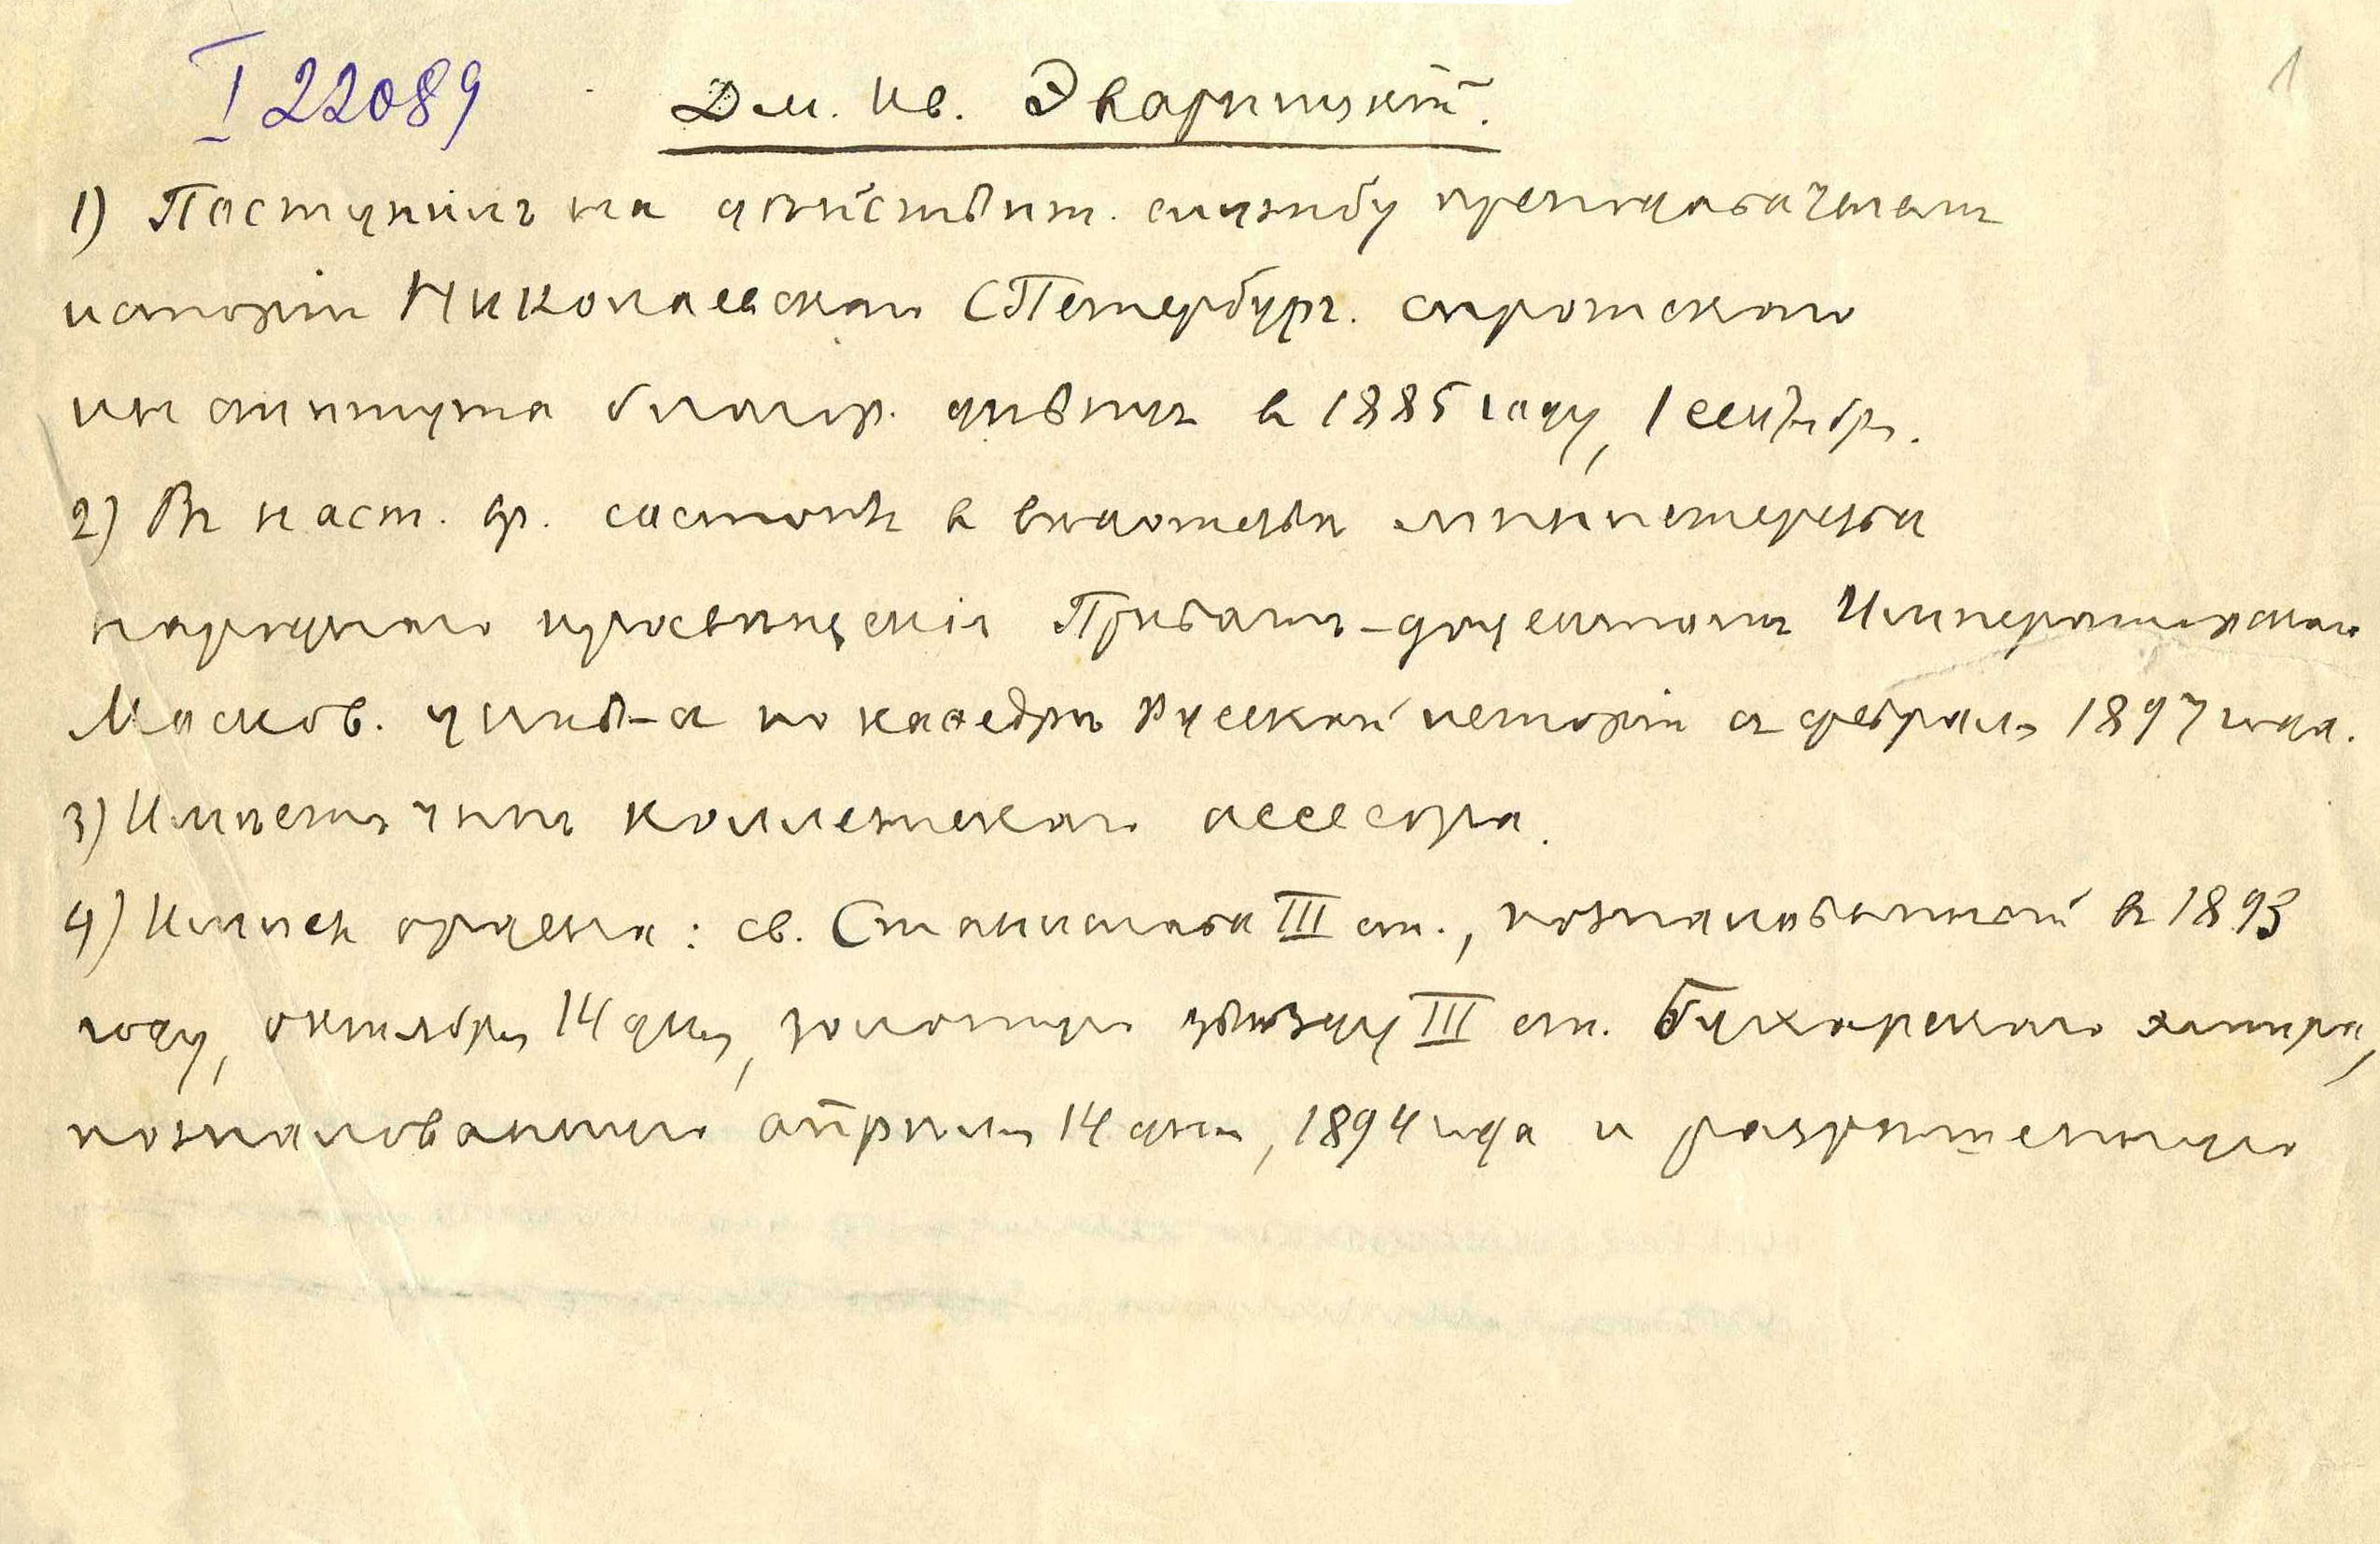 I 22089
1
Дм. Ив. Эварницкій.
1) Поступилъ на дѣйствит. службу преподавателемъ
исторіи Николаевскаго СПетербург. сиротскаго
института благор. дѣвицъ въ 1885 году, 1 сентября.
2) Въ наст. вр. состоитъ въ вѣдомствѣ министерства
народнаго просвѣщенія Приватъ-доцентомъ Императорскаго
Москов. унив-а по каѳедрѣ русской исторіи съ февраля 1897 года.
3) Имѣетъ чинъ коллежскаго ассесора.
4) Имѣетъ ордена: св. Станислава III ст., пожалованный въ 1893
году, октября 14 дня, золотую звѣзду III ст. Бухарскаго эмира,
пожалованную апрѣля 14 дня, 1894 года и разрѣшенную